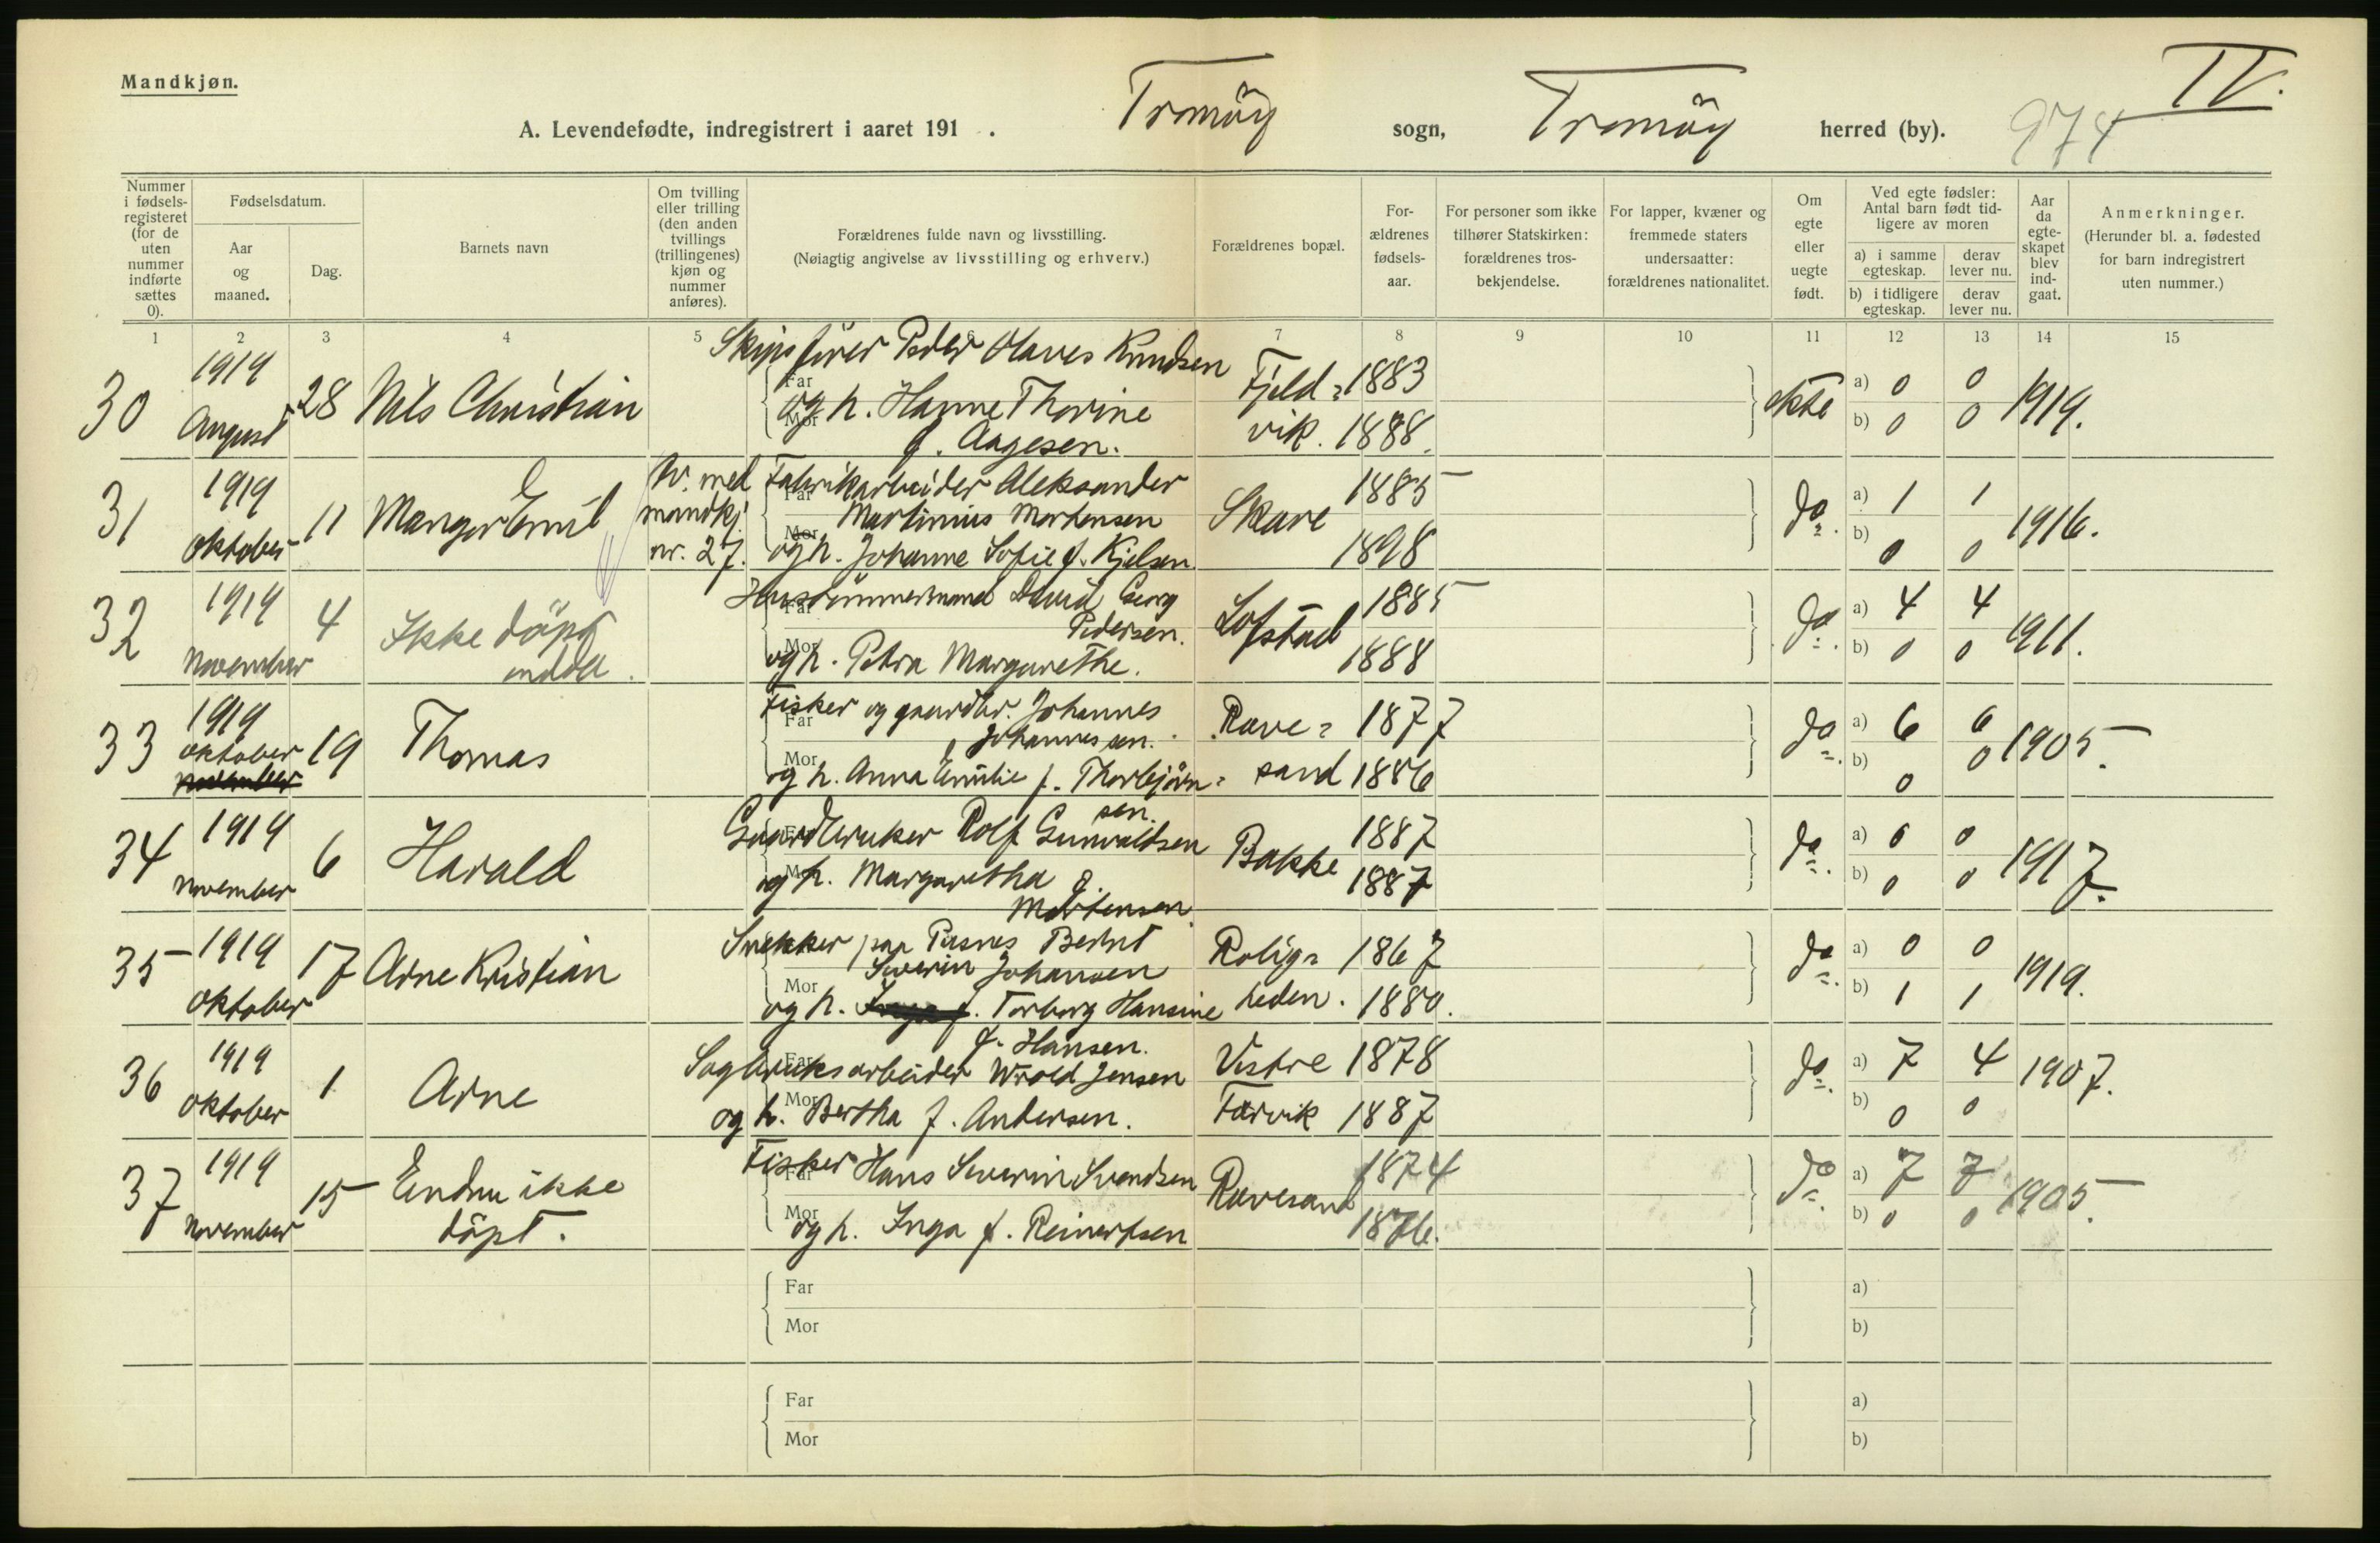 Mandkjøn.
IV.
A. Levendefødte, indregistrert i aaret 191 . Tromöy sogn, Tromöy herred (by). 974
Nummer i fødselsregisteret (for de uten nummer indførte sættes 0).
Fødselsdatum.
Aar og maaned.
Dag.
Barnets navn
Om tvilling eller trilling (den anden tvillings (trillingenes) kjøn og nummer anføres).
Forældrenes fulde navn og livsstilling.
(Nøiagtig angivelse av livsstilling og erhverv.)
Forældrenes bopæl.
Forældrenes fødselsaar.
For personer som ikke tilhører Statskirken: forældrenes trosbekjendelse.
For lapper, kvæner og fremmede staters undersaatter: forældrenes nationalitet.
Om egte eller uegte født.
Ved egte fødsler: Antal barn født tidligere av moren
a) i samme egteskap.
derav lever nu.
b) i tidligere egteskap.
derav lever nu.
Aar da egteskapet blev indgaat.
Anmerkninger.
(Herunder bl. a. fødested for barn indregistrert uten nummer.)
1 2 3 4 5 6 7 8 9 10 11 12 13 14 15
30 1919 August 28 Nils Christian
Far Skipsfører Peder Olaves Knudsen
Mor og h. Hanne Thorine
f. Aagesen.
Fjeld=
vik.
1883
1888.
ekte a) 0 0
b) 0 0
1919.
31 1919 Oktober 11 Manger Emil
tv. med
mandkj.
nr. 27.
Far Fabrikarbeider Aleksander
Martinius Mortensen
Mor og h. Johanne Sofie f. Kjelsen
Skare
1885
1898
do. a) 1 1
b) 0 0
1916.
32 1919 November 4 Ikke döpt
endda.
Far Hustömmermand David Georg
Pedersen.
Mor og h. Petra Margarethe.
Lofstad
1885
1888
do. a) 4 4
b) 0 0
1911.
33 1919 Oktober November 19 Thomas
Far Fisker og gaardbr. Johannes
Johannessen.
Mor og h. Anna Emilie f. Thorbjörn=
sen.
Rave=
sand
1877
1886
do. a) 6 6
b) 0 0
1905.
34 1919 November 6 Harald
Far Gaardbruker Rolf Gunvaldsen
Mor og h. Margaretha f.
Mortensen
Bakke
1887
1887
do. a) 0 0
b) 0 0
1917.
35 1919 Oktober 17 Arne Kristian
Snekker paa Pusnes Bernt
Severin Johansen
Mor og h. Inga f. Torborg Hansine
f. Hansen.
Rolig=
heden.
1867
1880.
do. a) 0 0
b) 1 1
1919.
36 1919 Oktober 1 Arne
Far Sagbruksarbeider Wrold Jensen
Mor og h. Bertha f. Andersen.
Vestre
Færvik
1878
1887
do. a) 7 4
b) 0 0
1907.
37 1919 November 15 Endnu ikke
döpt.
Far Fisker Hans Severin Svendsen
Mor og h. Inga f. Reinertsen
Ravesand
1874
1876.
do. a) 7 7
b) 0 0
1905.
Far
Mor
a)
b)
Far
Mor
a)
b)